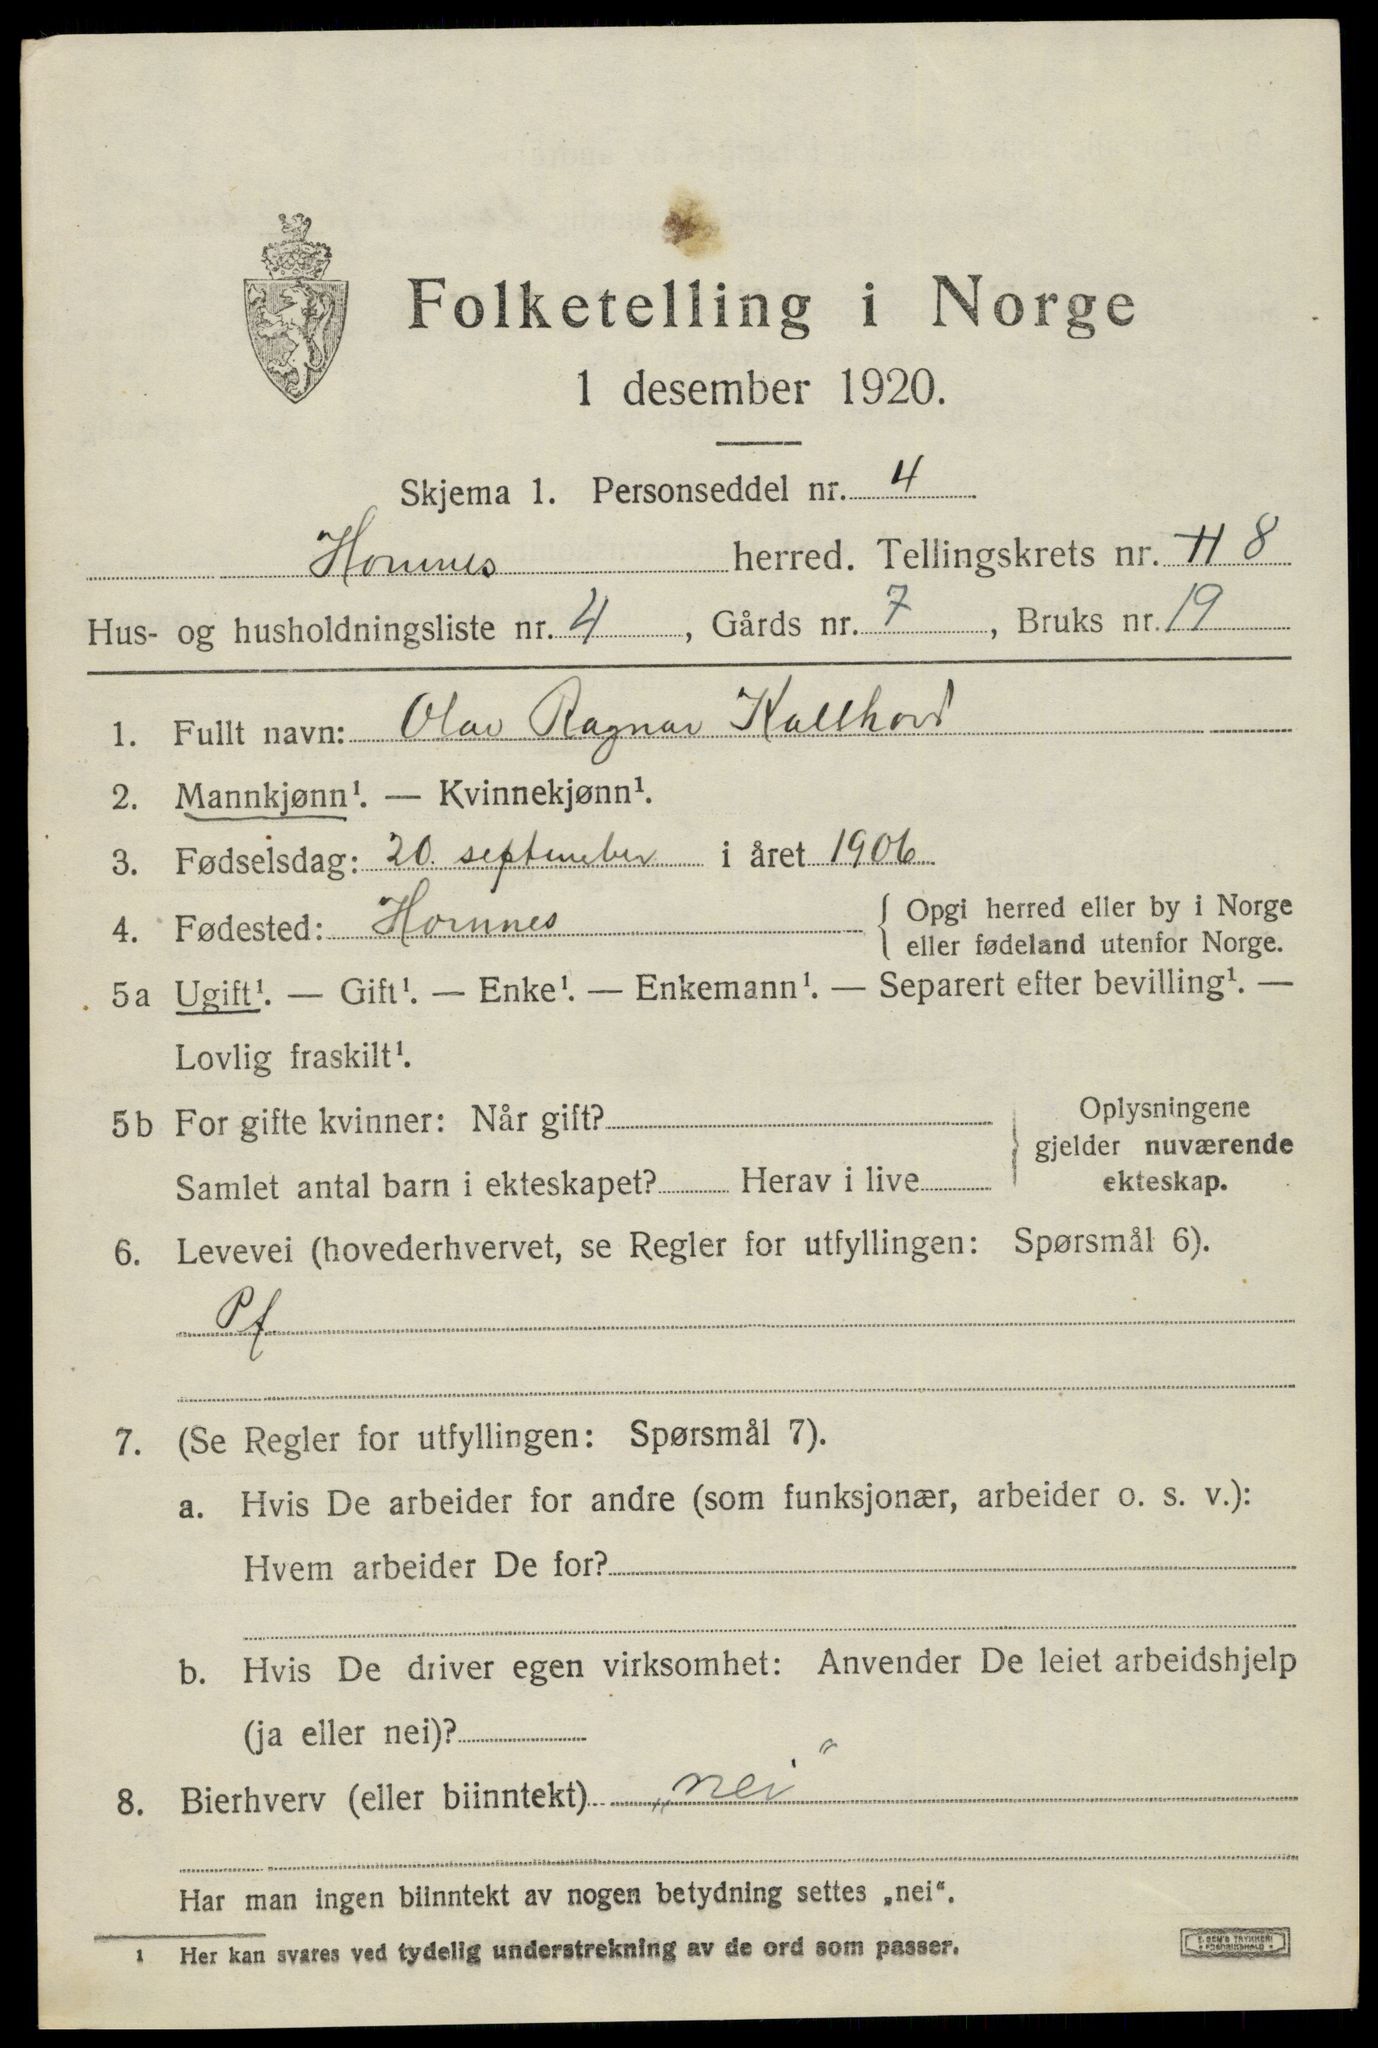 Folketelling i Norge
1 desember 1920.
Skjema 1. Personseddel nr. 4
Hornnes herred. Tellingskrets nr. 8
Hus- og husholdningsliste nr. 4, Gårds nr. 7, Bruks nr. 19
1. Fullt navn: Olav Ragnar Kallhovd
2. Mannkjønn¹. — Kvinnekjønn¹.
3. Fødselsdag: 20. september i året 1906
4. Fødested: Hornnes { Opgi herred eller by i Norge
eller fødeland utenfor Norge.
5a Ugift¹. — Gift¹. — Enke¹. — Enkemann¹. — Separert efter bevilling¹. —
Lovlig fraskilt¹.
5b For gifte kvinner: Når gift? } Oplysningene
gjelder nuværende
Samlet antal barn i ekteskapet? Herav i live ekteskap.
6. Levevei (hovederhvervet, se Regler for utfyllingen: Spørsmål 6).
Pf
7. (Se Regler for utfyllingen: Spørsmål 7).
a. Hvis De arbeider for andre (som funksjonær, arbeider o. s. v.):
Hvem arbeider De for?
b. Hvis De driver egen virksomhet: Anvender De leiet arbeidshjelp
(ja eller nei)?
8. Bierhverv (eller biinntekt) „nei“
Har man ingen biinntekt av nogen betydning settes „nei“.
¹ Her kan svares ved tydelig understrekning av de ord som passer.